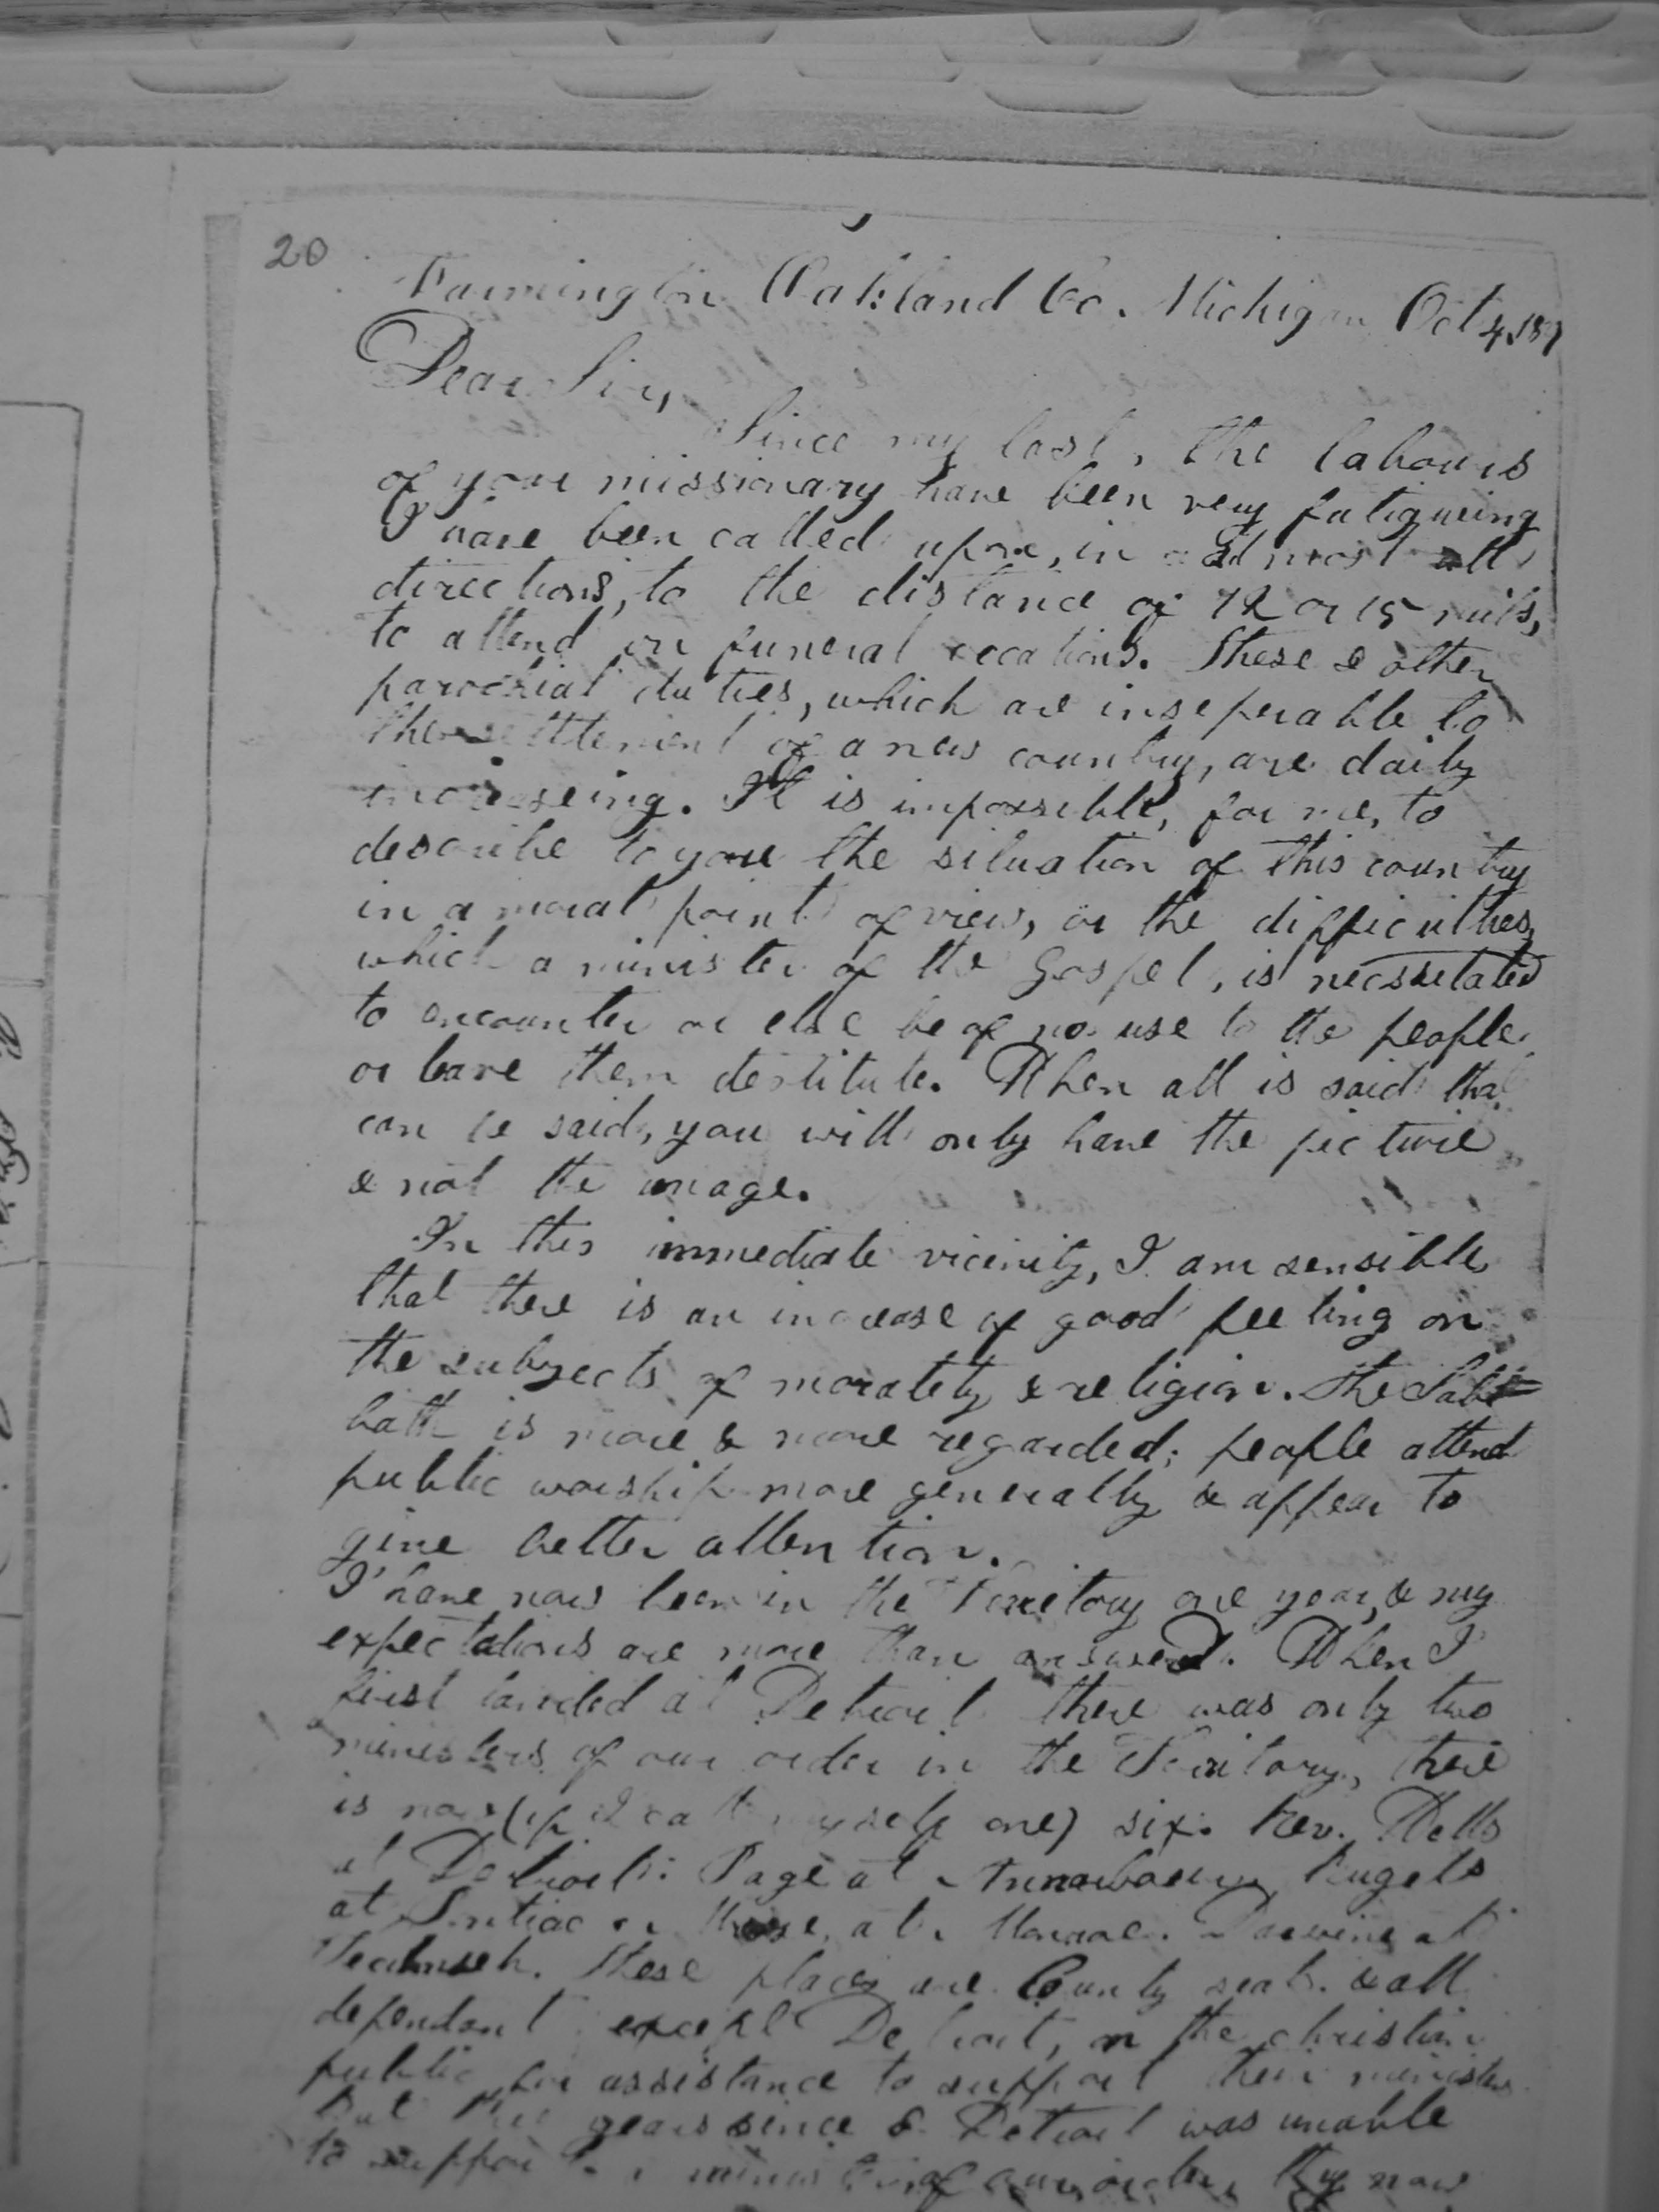 20
Farmington Oakland Co. Michigan Oct 4, 18
Dear Sir,
Since my last, the labours
of your missionary have been very fatigueing
I have been called upon, in almost all
directions, to the distance of 12 or 15 mils,
to attend on funeral occations. These & other
parochial duties, which are inseperable to
the settlement of a new country, are daily
increaseing. It is impossible, for me, to
describe to you the situation of this country
in a moral point of view, or the difficulties,
which a minister of the Gospel, is necssetated
to encounter or else be of no use to the people
or leave them destitute. When all is said that
can be said, you will only have the picture
& not the image.
In this immediate vicinity, I am sensible,
that there is an increase of good feeling on
the subjects of moratety & religion. The Sab=
bath is more & more regarded; people attend
public worship more generally & appear to
give better attention.
I have now been in the Territory one year, & my
expectations are more than answered. When I
first landed at Detroit there was only two
ministers of our order in the Territory, there
is now (if I call myself one) six. Rev. Wells
at Detroit: Page at Rugels
at Pontiac at Monroe. at
Tecumseh. These places are County seats & all
dependent except Detroit, on the christian
public for assistance to support their ministers
But years since & Detroit was unable
to support a minister of our order, they now